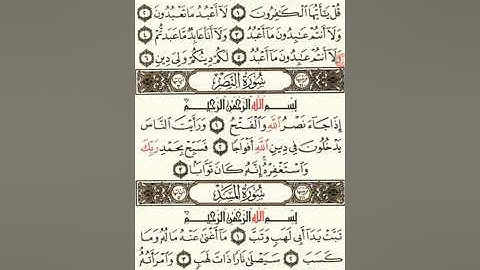 قُلْ يَٰٓأَيُّهَا ٱلْكَٰفِرُونَ ١ لَآ أَعْبُدُ مَا تَعْبُدُونَ ٢
وَلَآ أَنتُمْ عَٰبِدُونَ مَآ أَعْبُدُ ٣ وَلَآ أَنَا۠ عَابِدٌ مَّا عَبَدتُّمْ ٤
وَلَآ أَنتُمْ عَٰبِدُونَ مَآ أَعْبُدُ ٥ لَكُمْ دِينُكُمْ وَلِىَ دِينِ ٦
سُورَةُ النَّصْرِ
بِسْمِ ٱللَّهِ ٱلرَّحْمَٰنِ ٱلرَّحِيمِ
إِذَا جَآءَ نَصْرُ ٱللَّهِ وَٱلْفَتْحُ ١ وَرَأَيْتَ ٱلنَّاسَ
يَدْخُلُونَ فِى دِينِ ٱللَّهِ أَفْوَاجًا ٢ فَسَبِّحْ بِحَمْدِ رَبِّكَ
وَٱسْتَغْفِرْهُ إِنَّهُۥ كَانَ تَوَّابًۢا ٣
سُورَةُ المَسَدِ
بِسْمِ ٱللَّهِ ٱلرَّحْمَٰنِ ٱلرَّحِيمِ
تَبَّتْ يَدَآ أَبِى لَهَبٍ وَتَبَّ ١ مَآ أَغْنَىٰ عَنْهُ مَالُهُۥ وَمَا
كَسَبَ ٢ سَيَصْلَىٰ نَارًا ذَاتَ لَهَبٍ ٣ وَٱمْرَأَتُهُۥ